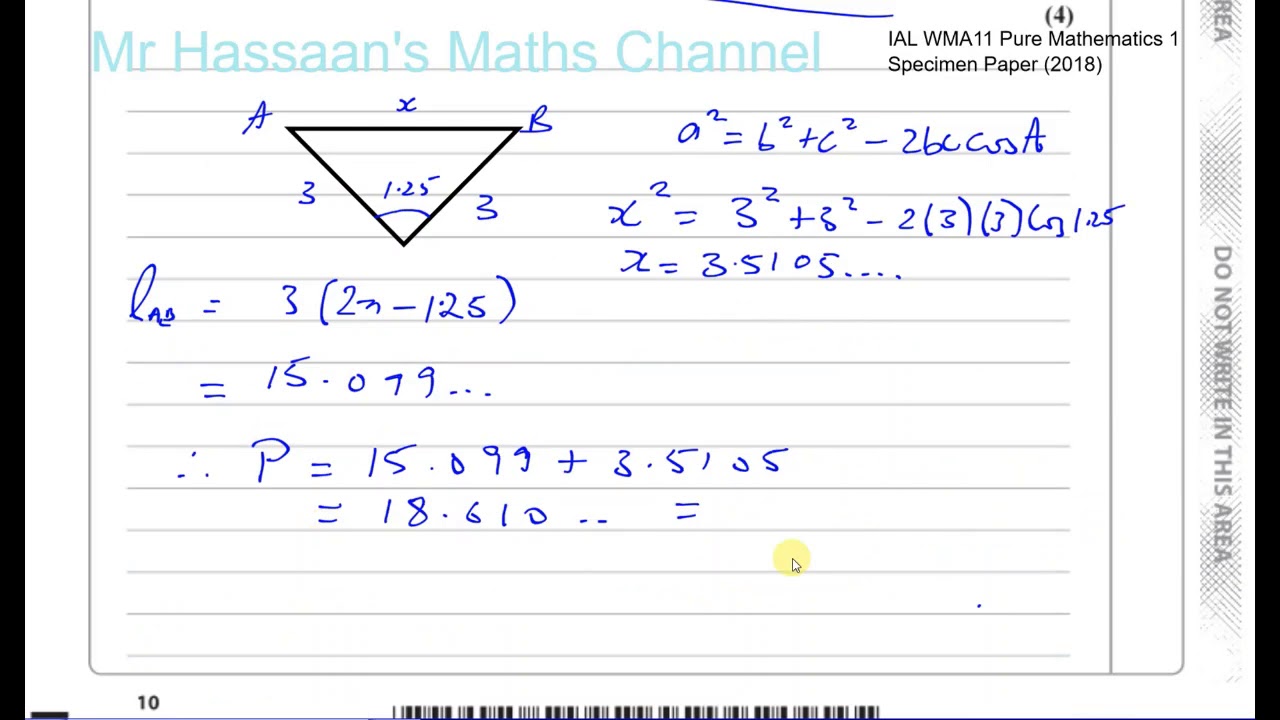 (4)
Mr Hassaan's Maths Channel
IAL WMA11 Pure Mathematics 1
Specimen Paper (2018)
A x B
3 1.25 3
a² = b² + c² - 2bc cos A
x² = 3² + 3² - 2(3)(3) cos 1.25
x = 3.5105....
l_AB = 3(2π - 1.25)
= 15.099...
∴ P = 15.099 + 3.5105
= 18.610 .. =
AREA
DO NOT WRITE IN THIS AREA
10